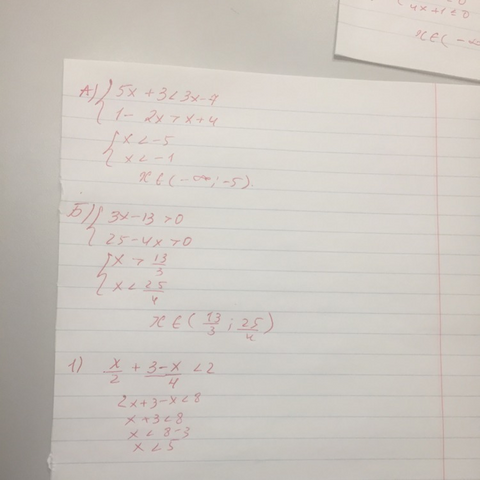 4x+1≤0
x∈(-∞
А) { 5x+3<3x-7
1-2x>x+4
{ x<-5
x<-1
x∈(-∞;-5).
Б) { 3x-13>0
25-4x>0
{ x>13/3
x<25/4
x∈(13/3;25/4)
1) x/2+3-x/4<2
2x+3-x<8
x+3<8
x<8-3
x<5